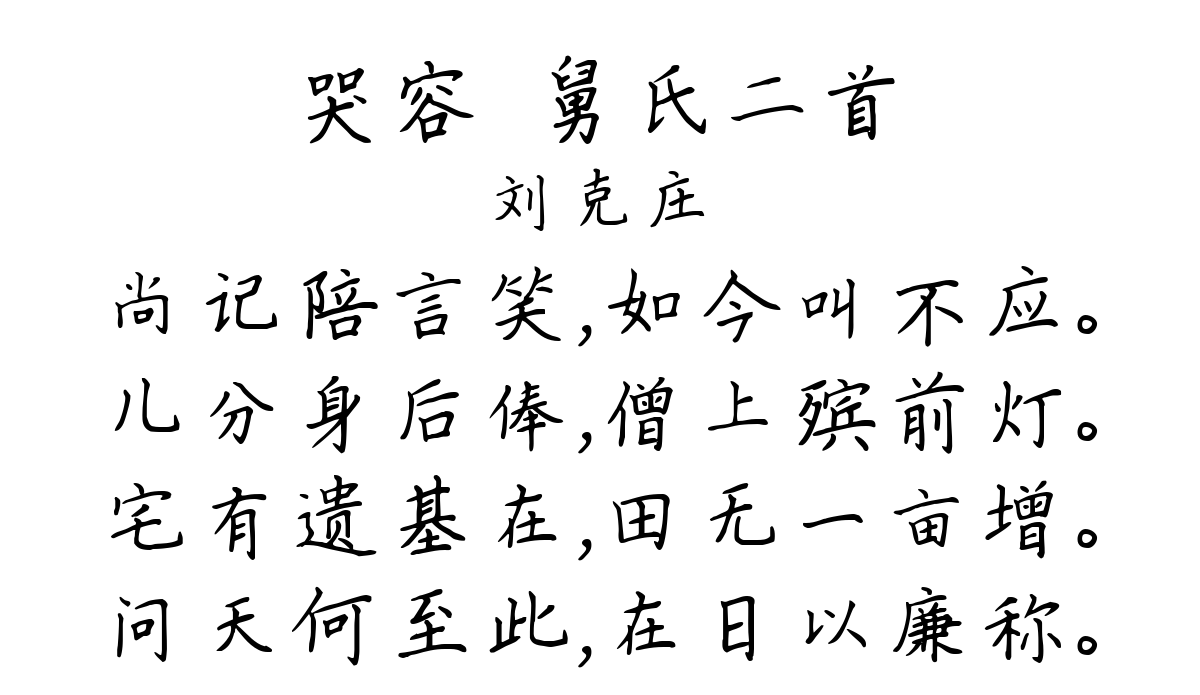 哭容 舅氏二首
刘克庄
尚记陪言笑,如今叫不应。
儿分身后俸,僧上殡前灯。
宅有遗基在,田无一亩增。
问天何至此,在日以廉称。